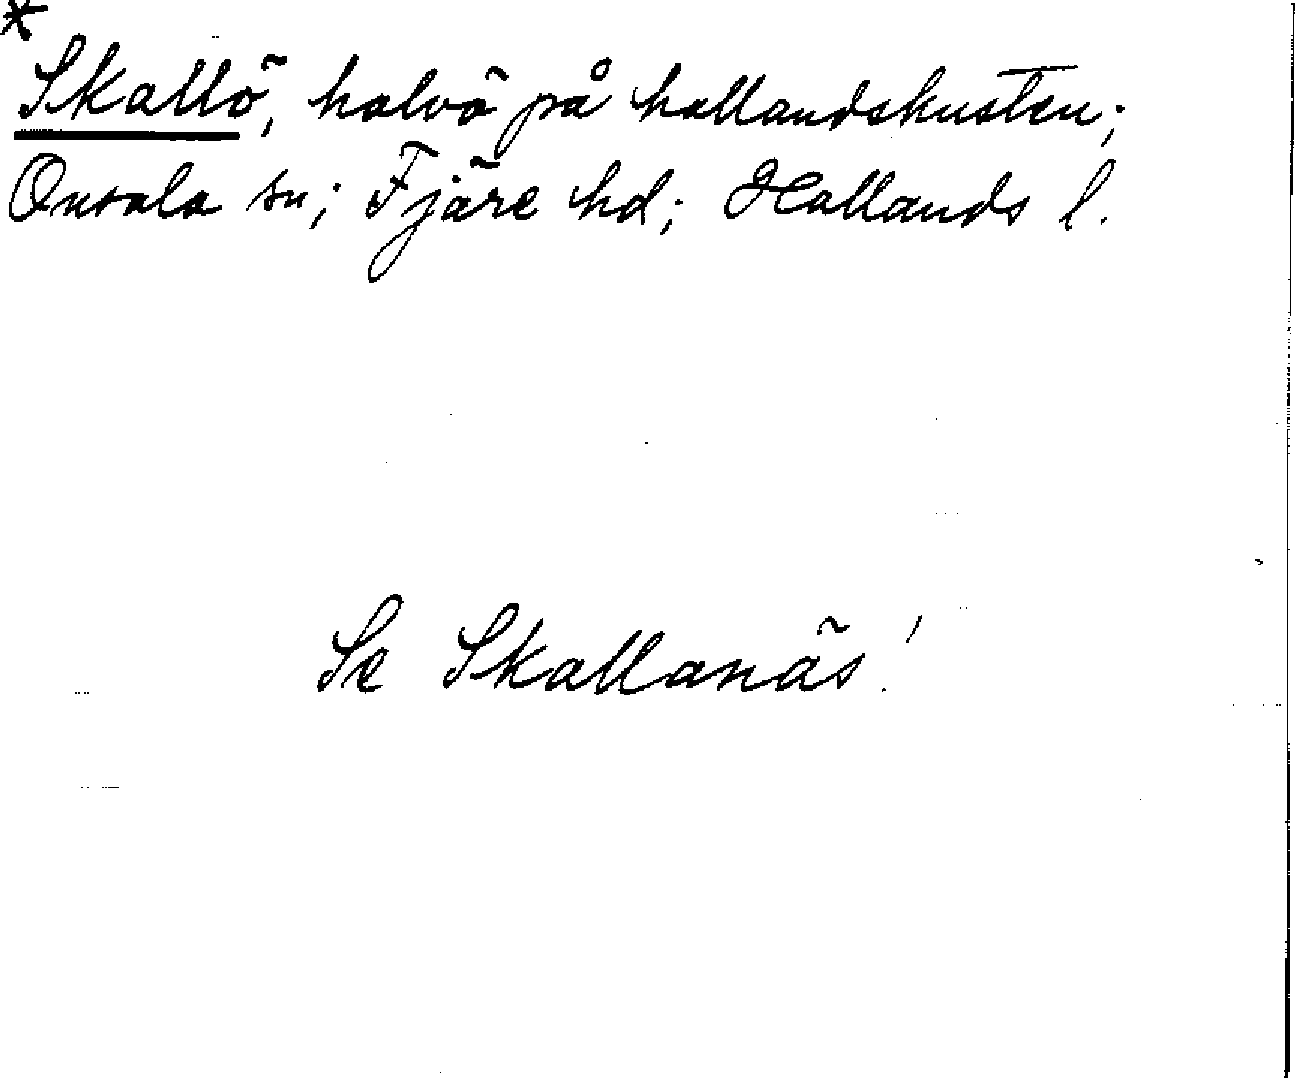 *
Skallö, halvö på hallandskusten;
Onsala sn; Fjäre hd; Hallands l.
Se Skallanäs!